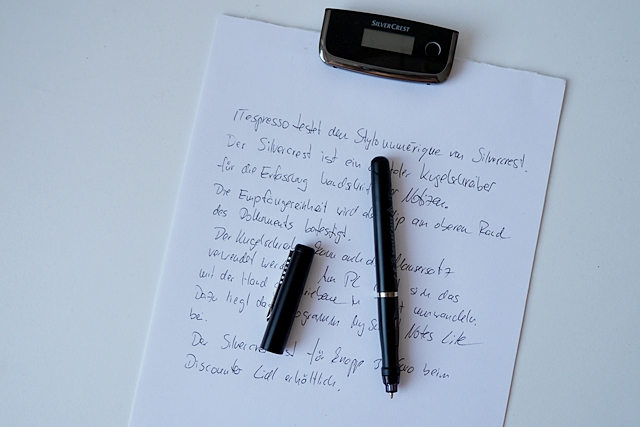 SILVERCREST
ITespresso testet den Stylo numérique von Silvercrest.
Der Silvercrest ist ein Kugelschreiber
für die Erfassung Notizen.
Die Empfängereinheit wird am oberen Rand
des Dokuments befestigt.
Der auch
verwendet PC sich das
mit der Hand in umwandeln.
Dazu liegt das Programm My Notes Lite
bei.
Der Silvercrest ist für knapp beim
Discounter Lidl erhältlich.